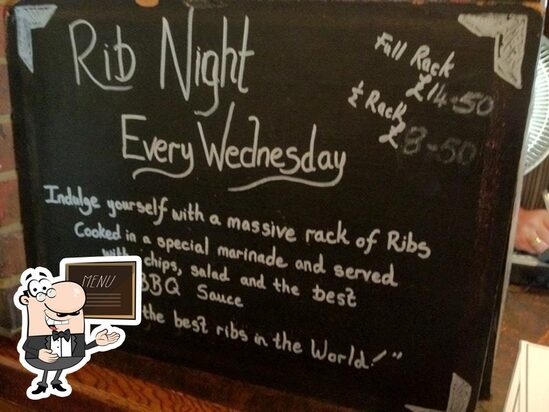 Rib Night
Every Wednesday
Full Rack
£14-50
½ Rack
£8-50
Indulge yourself with a massive rack of Ribs
Cooked in a special marinade and served
with chips, salad and the best
BBQ Sauce
the best ribs in the World!"
MENU